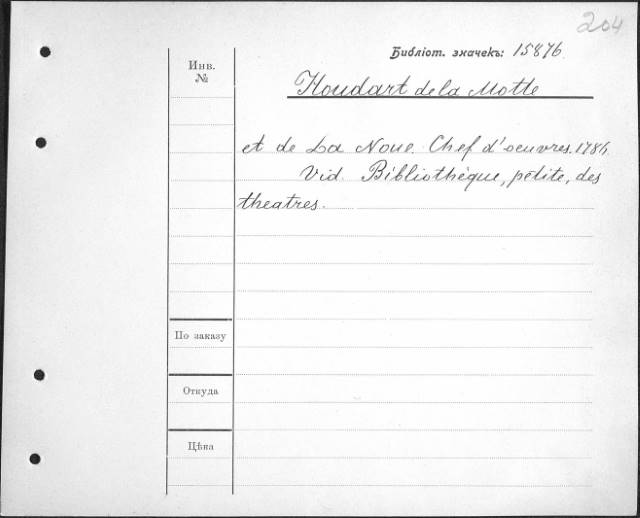 204
Библіот. значекъ: 15876.
Инв.
№
Houdart de la Motte
et de La Noue. Chef d'oeuvres. 1784.
Vid. Bibliothèque, petite, des
theatres.
По заказу
Откуда
Цѣна